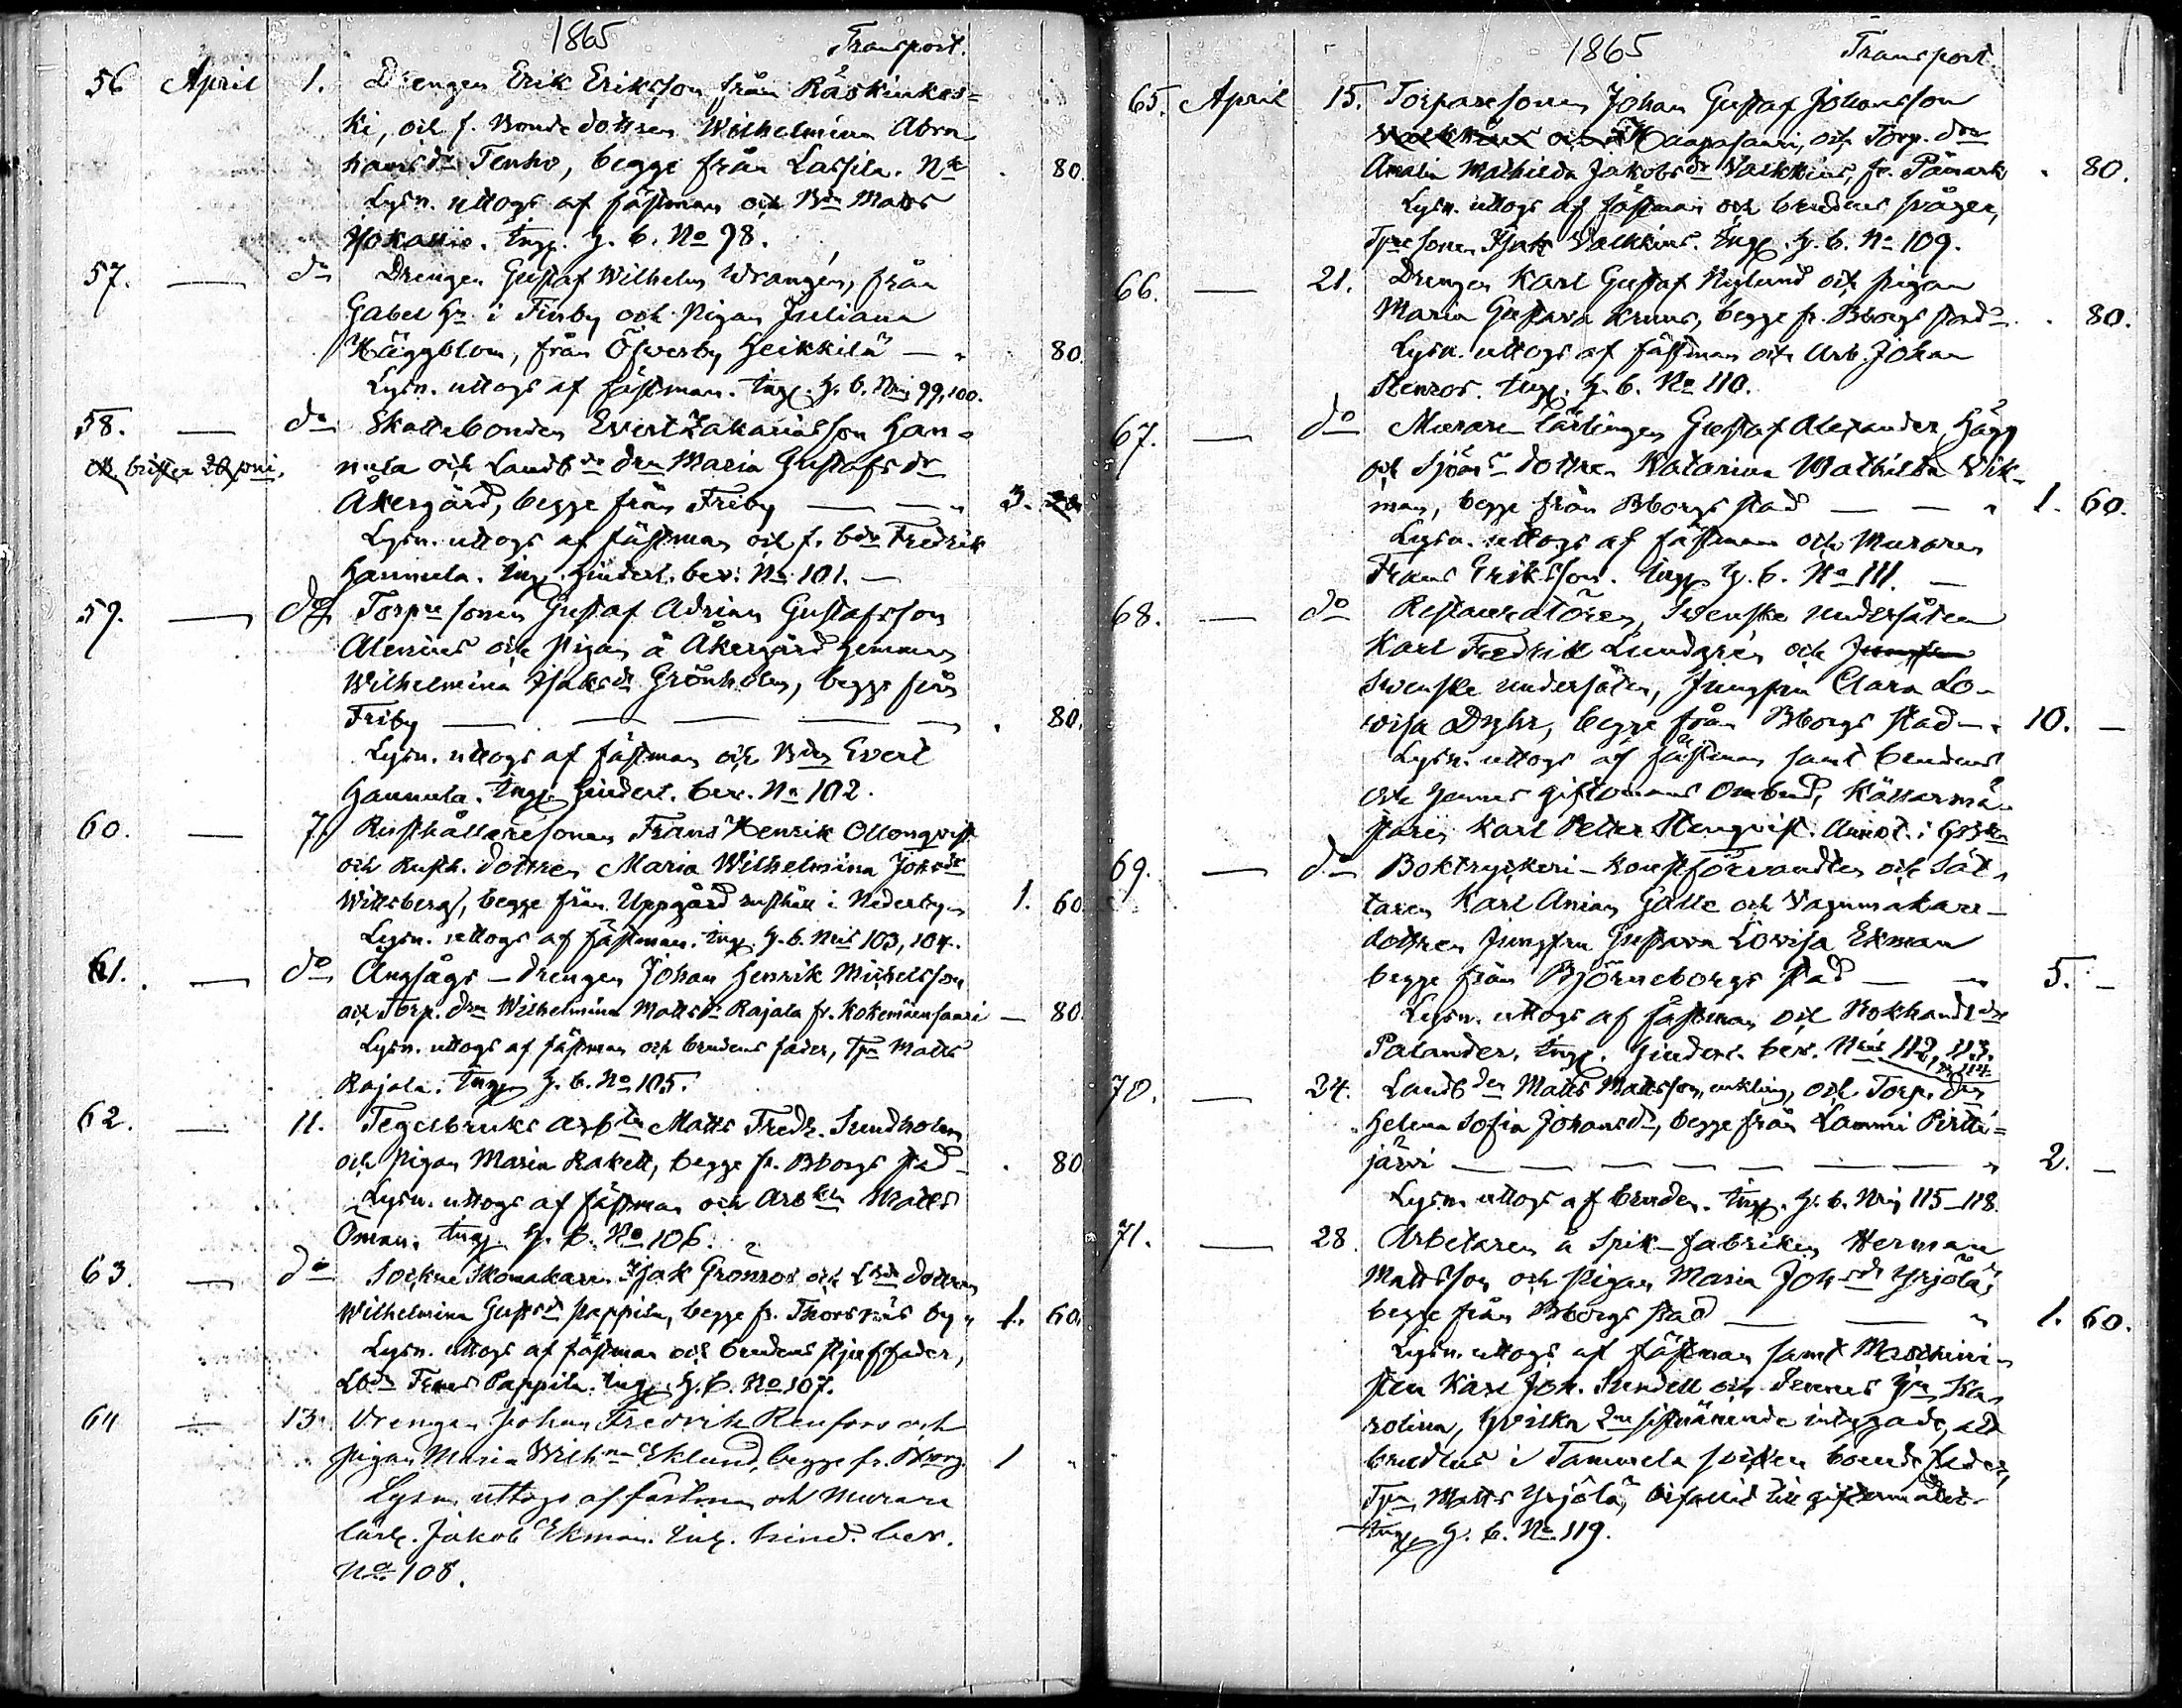 1865 Transport.
56 April 1. Drengen Erik Eriksson från Räskinkos-
ki, och f. Bonde dottren Wilhelmina Abra-
hamsdr Tenho, begge från Lassila. Nr . 80.
Lysn. uttogs af fästman och Bdn Matts
Hokanio. Ingf. H. b. No 98.
57. — do Drengen Gustaf Wilhelm Wrangén, från
Gabel Hn i Finby och Pigan Juliana
Häggblom, från Öfverby Heikkilä — „ 80.
Lysn. uttogs af fästman. Ingf. H. b. Nris 99, 100.
58. — do Skattebonden Evert Zakariasson Han-
brister 20 pni. nula och Landbdo drn Maria Gustafsdr
Åkergård, begge från Friby — — „ 3. 20
Lysn. uttogs af fästman och f. bdn Fredrik
Hannula. Ingf. Hinderl. bev. No 101. —
59. — do Torpresonen Gustaf Adrian Gustafsson
Alenius och Pigan å Åkergård hemman
Wilhelmina Isaksdr Grönholm, begge från
Friby — — — — — . 80.
Lysn. uttogs af fästman och Bdn Evert
Hannula. Ingf. Hinderl. bev. No 102.
60. — 7. Rusthållaresonen Frans Henrik Ollonqvist
och Rusth. dottren Maria Wilhelmina Johsdr
Willsberg, begge från Uppgård rusthåll i Nederby „ 1. 60.
Lysn. uttogs af fästman. Ingf. H. b. Nris 103, 104.
61. — do Ångsågs-drengen Johan Henrik Mickelsson
och Torp. drn Wilhelmina Mattsdr Rajala fr. Kokemäensaari — 80.
Lysn. uttogs af fästman och brudens fader, Tpn Matts
Rajala. Ingf. H. b. No 105.
62. — 11. Tegelbruks arbtn Matts Fredr. Sundholm
och pigan Maria Rakett, begge fr. Bborgs stad — . 80
Lysn. uttogs af fästman och Arbtn Matts
Öman. Ingf. H. b. No 106.
63. — do Sockne Skomakaren Isak Grönroos och Lbdo dottren
Wilhelmina Gustsdr Pappila, begge fr. Thorsnäs by „ 1. 60.
Lysn. uttogs af fästman och brudens stjuffader,
Lbdn Frans Pappila. Ingf. H. b. No 107.
64 — 13. Drengen Johan Fredrik Renfors och
pigan Maria Wilhna Eklund, begge fr. Bborg 1 „
Lysn. uttogs af fästman och Murare
lärl. Jakob Ekman. Ingf. hind. bev.
No 108.
1865 Transport
65. April 15. Torparesonen Johan Gustaf Johansson
Haapasaari, och Torp. drn
Amalia Mathilda Jakobsdr Valkkius, fr. Påmark . 80.
Lysn. uttogs af fästman och brudens svåger,
Tpresonen Isak Valkkius. Ingf. H. b. No 109.
66. — 21. Drengen Karl Gustaf Nylund och pigan
Maria Gustava Kruus, begge fr. Bborgs stad — . 80.
Lysn. uttogs af fästman och Arb. Johan
Stenroos. Ingf. H. b. No 110.
67. — do Murare lärlingen Gustaf Alexander Hägg
och Sjömns dottren Katarina Mathilda Wik-
man, begge från Bborgs stad — — „ 1. 60.
Lysn. uttogs af fästman och Muraren
Frans Eriksson. Ingf. H. b. No 111. —
68. — do Restauratören, Svenske undersåten
Karl Fredrik Lundgrén och Jungfru
svenske undersåten, Jungfru Clara Lo-
wisa Dyhr, begge från Bborgs stad — „ 10. —
Lysn. uttogs af fästman samt brudens
och hennes giftomans Ombud, Källarmä-
staren Karl Petter Stenqvist. Annot. i
69. — do Boktryckeri-konstförvandten och Sät-
taren Karl Anian Galle och Vagnmakare-
dottren Jungfru Gustava Lovisa Ekman
begge från Björneborgs stad — — „ 5. —
Lysn. uttogs af fästman och Bokhandldn
Palander. Ingf. Hinderl. bev. Nris 112, 113.
o. 114.
70. — 24. Landbden Matts Mattsson, enkling, och Torp. drn
Helena Sofia Johansdr, begge från Lammi Pirtti-
järvi — — — — — — — „ 2. —
Lysn. uttogs af bruden. Ingf. H. b. Nris 115–118.
71. — 28. Arbetaren å Spik-fabriken Herman
Mattsson och pigan Maria Johsdr Yrjölä,
begge från Bborgs stad — — „ 1. 60.
Lysn. uttogs af fästman samt Maskini-
sten Karl Joh. Sundell och dennes Hu Ka-
rolina, hvilka 2ne sistnämnde intygade, att
brudens i Tammela socken boende fader,
Tpn Matts Yrjölä, bifallit till giftermålet.
Ingf. H. b. No 119.